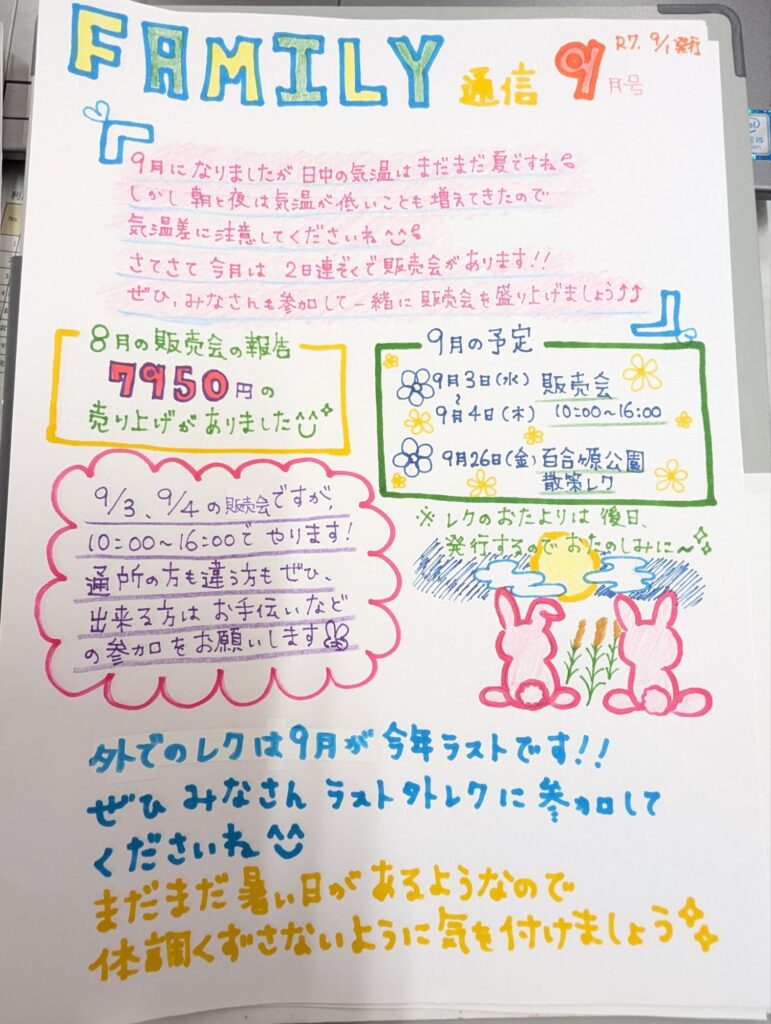 FAMILY 通信 9月号
R7. 9/1 発行
9月になりましたが 日中の気温は まだまだ 夏ですね
しかし 朝と夜は 気温が 低いことも 増えてきたので
気温差に 注意してくださいね^^
さてさて 今月は 2日連ぞくで 販売会が あります!!
ぜひ、みなさんも 参加して 一緒に 販売会を 盛り上げましょう↑↑
8月の販売会の報告
7950円の
売り上げが ありました
9月の予定
9月3日(水) 販売会
~
9月4日(木) 10:00~16:00
9月26日(金) 百合が原公園
散策レク
※ レクのおたよりは 後日、
発行するので おたのしみに~
9/3、9/4の販売会ですが、
10:00~16:00で やります!
通所の方も 違う方も ぜひ、
出来る方は お手伝いなど
の参加を お願いします
外でのレクは 9月が 今年ラストです!!
ぜひ みなさん ラスト外レクに 参加して
くださいね^^
まだまだ 暑い日が あるようなので
体調くずさないように 気を付けましょう
intel
i5